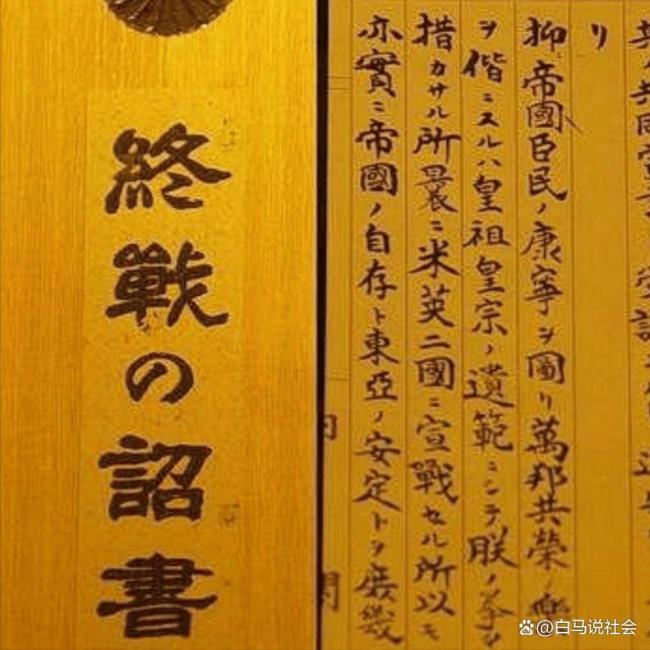 終戰の詔書
其ノ共同宣言ヲ受諾
リ
抑帝國臣民ノ康寧ヲ圖リ萬邦共榮ノ樂
ヲ偕ニスルハ皇祖皇宗ノ遺範ニシテ朕ノ拳
措カサル所曩ニ米英二國ニ宣戰セル所以モ
亦實ニ帝國ノ自存ト東亞ノ安定トヲ庶幾
@白马说社会